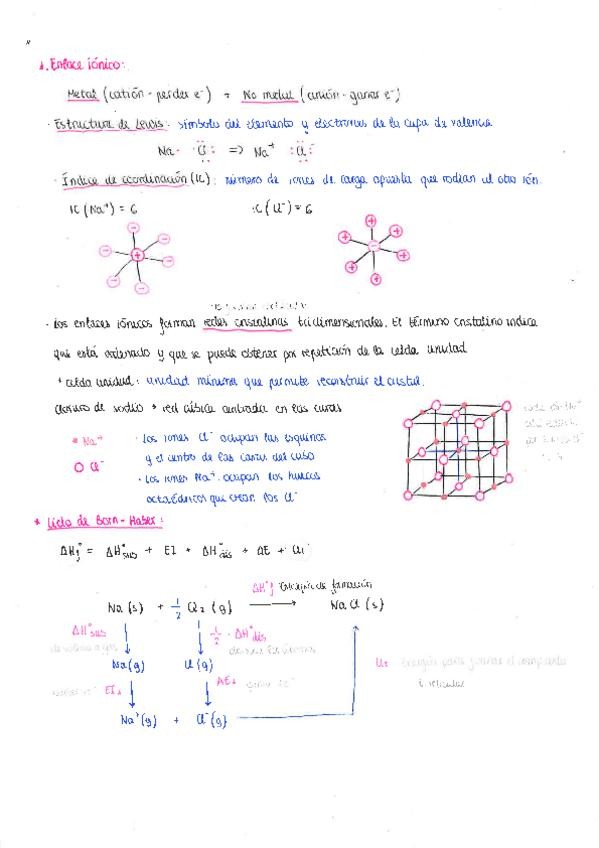 1. Enlace iónico:
Metal (catión - perder e⁻) + No metal (anión - ganar e⁻)
· Estructura de Lewis: símbolo del elemento y electrones de la capa de valencia
Na· Cl ⇒ Na⁺ :Cl:⁻
· Índice de coordinación (IC): número de iones de carga opuesta que rodean al otro ión.
IC (Na⁺) = 6 IC (Cl⁻) = 6
· Los enlaces iónicos forman redes cristalinas tridimensionales. El término cristalino indica
que está ordenado y que se puede obtener por repetición de la celda unidad
* celda unidad: unidad mínima que permite reconstruir el cristal.
Cloruro de sodio → red cúbica centrada en las caras
Na⁺ · Los iones Cl⁻ ocupan las esquinas
Cl⁻ y el centro de las caras del cubo
· Los iones Na⁺ ocupan los huecos
octaédricos que crean los Cl⁻
* Ciclo de Born-Haber:
ΔHf° = ΔH°sub + EI + ΔH°dis + AE + U
ΔH°f Entalpía de formación
Na (s) + 1/2 Cl2 (g) → Na Cl (s)
ΔH°sub 1/2 · ΔH°dis
Na(g) Cl(g)
U: Energía para formar el compuesto
EI AE
Na⁺(g) + Cl⁻(g)